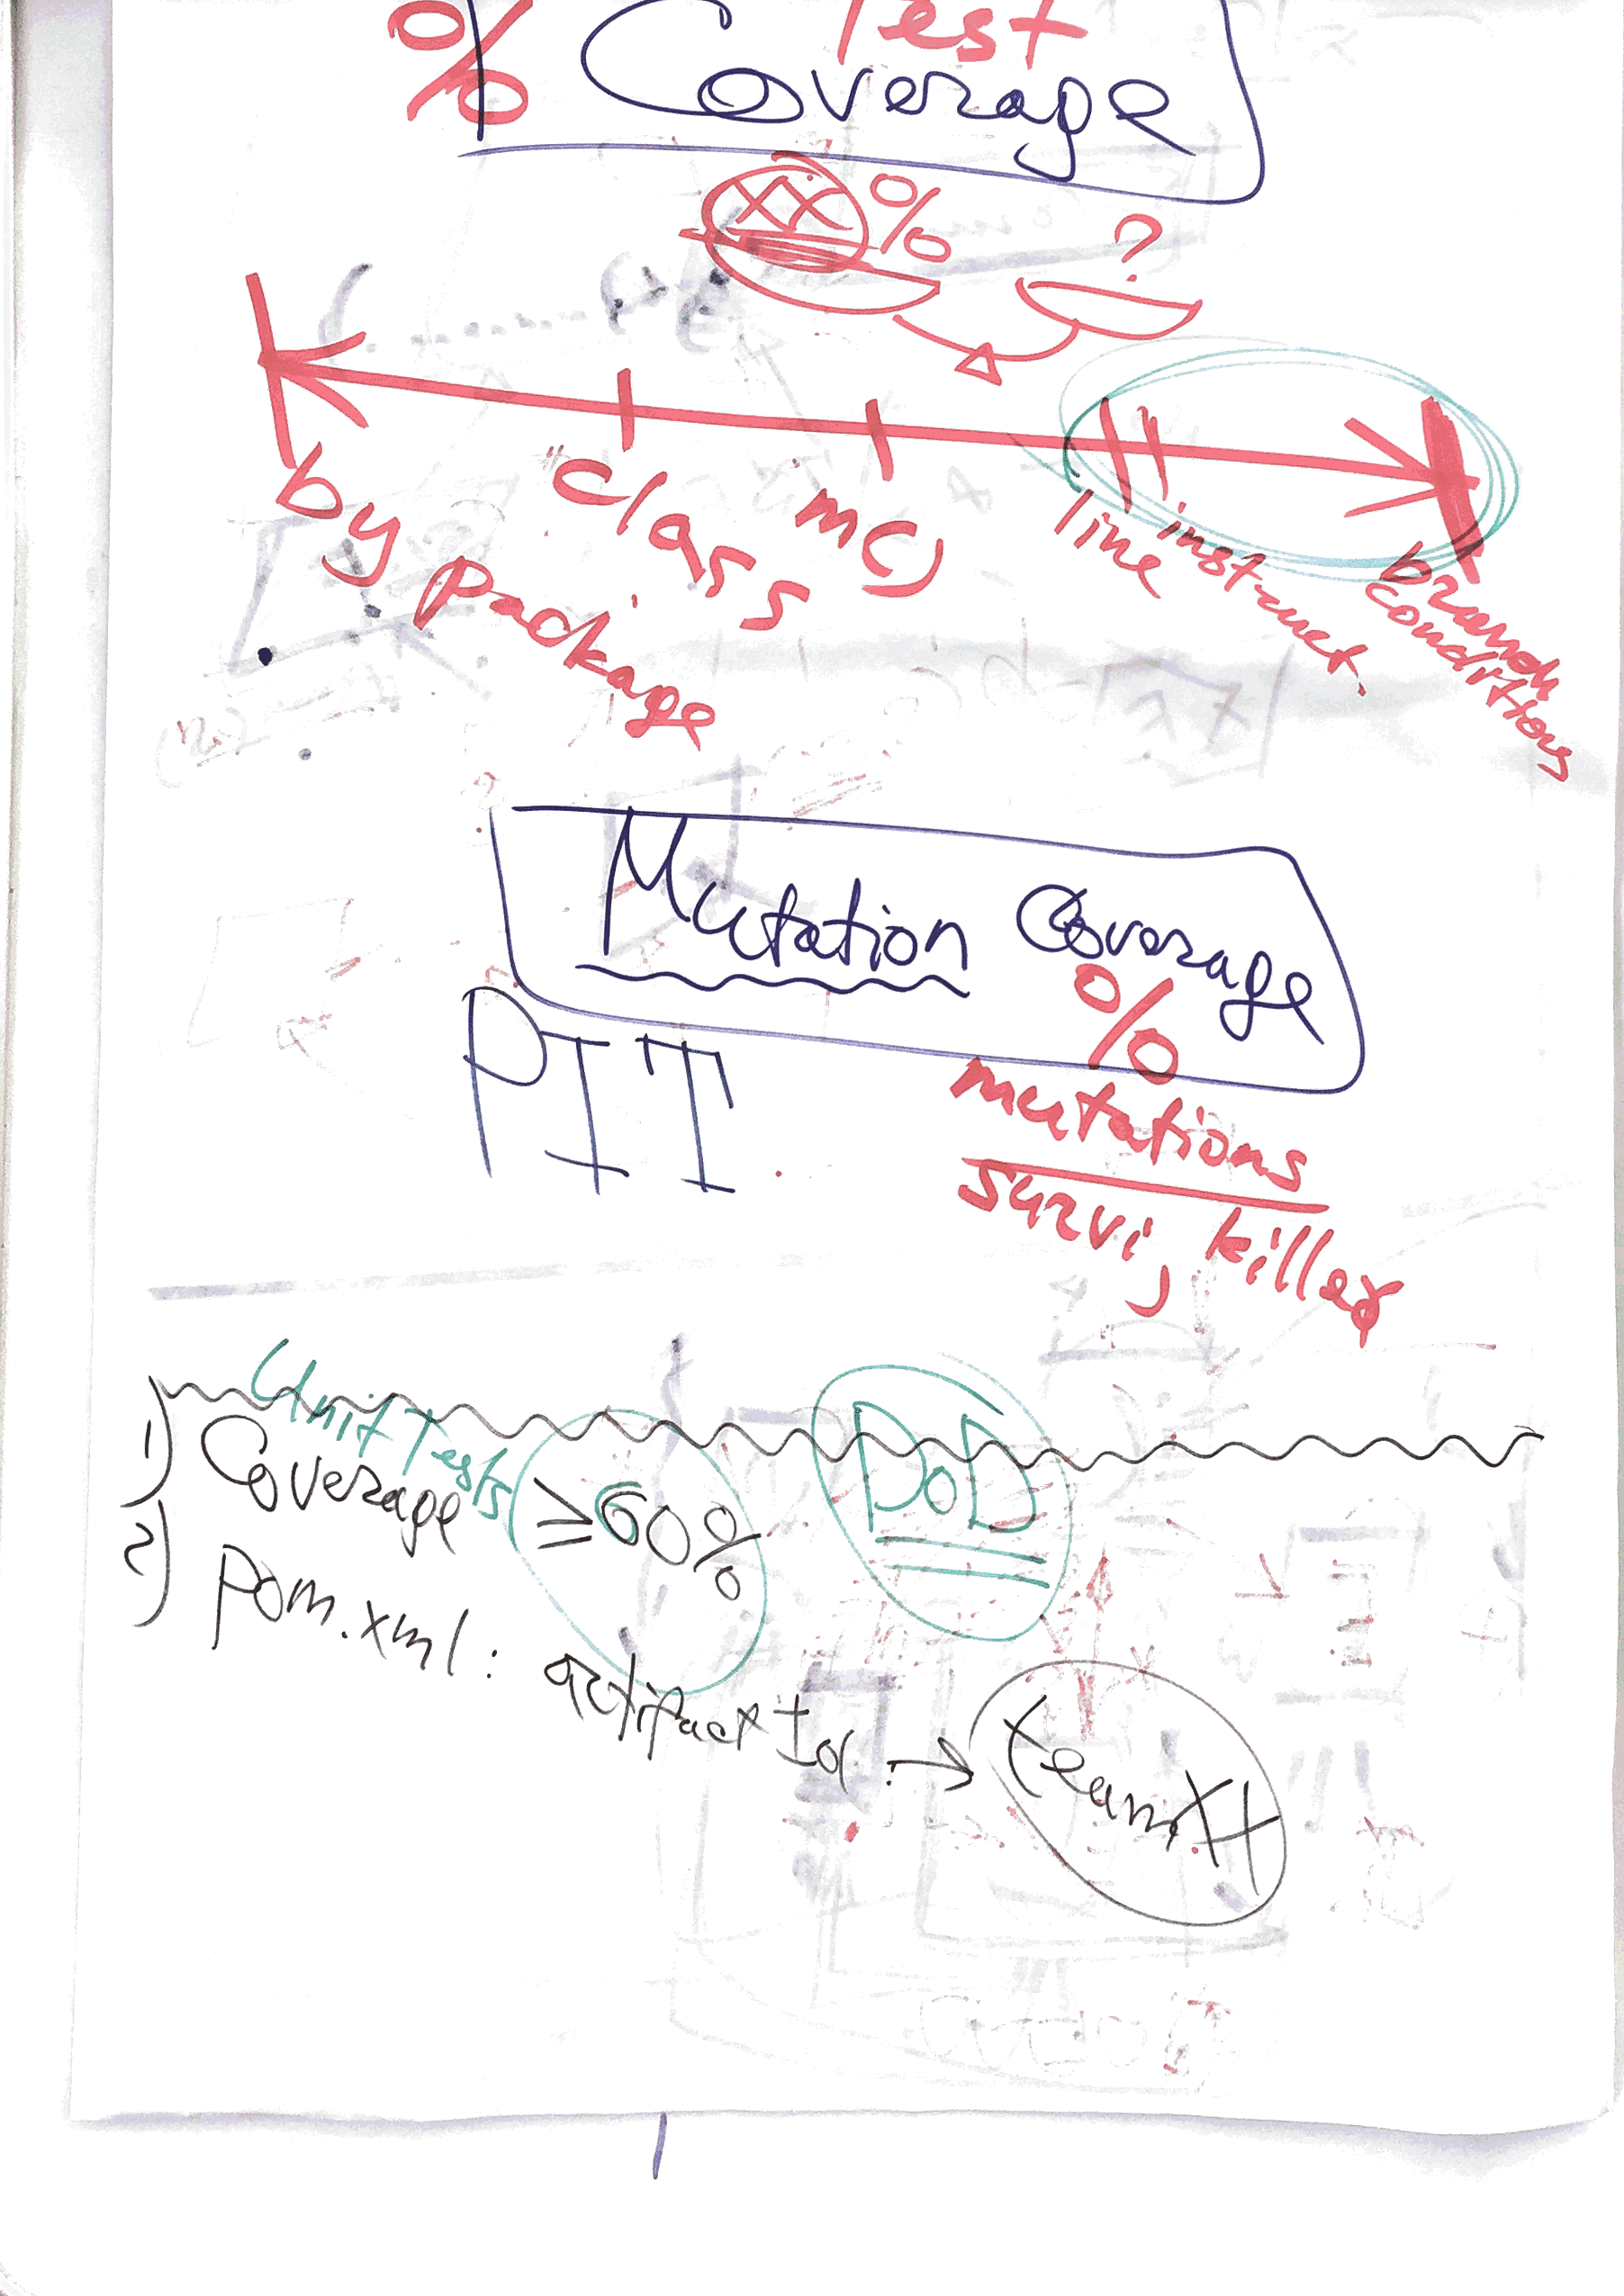 Test
% Coverage
XX %
?
by package
class
m()
line
instruct.
branch
conditions
Mutation Coverage
%
PIT
mutations
survi, killer
Unit Tests
1) Coverage ≥60%
DoD
2) pom.xml: artifact Id → teamXX